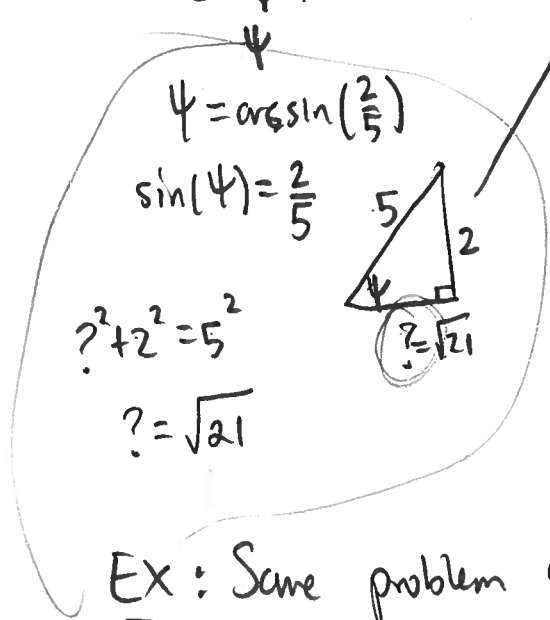 ψ
ψ = arcsin(2/5)
sin(ψ) = 2/5
5
2
ψ
? = √21
?² + 2² = 5²
? = √21
EX : Same problem